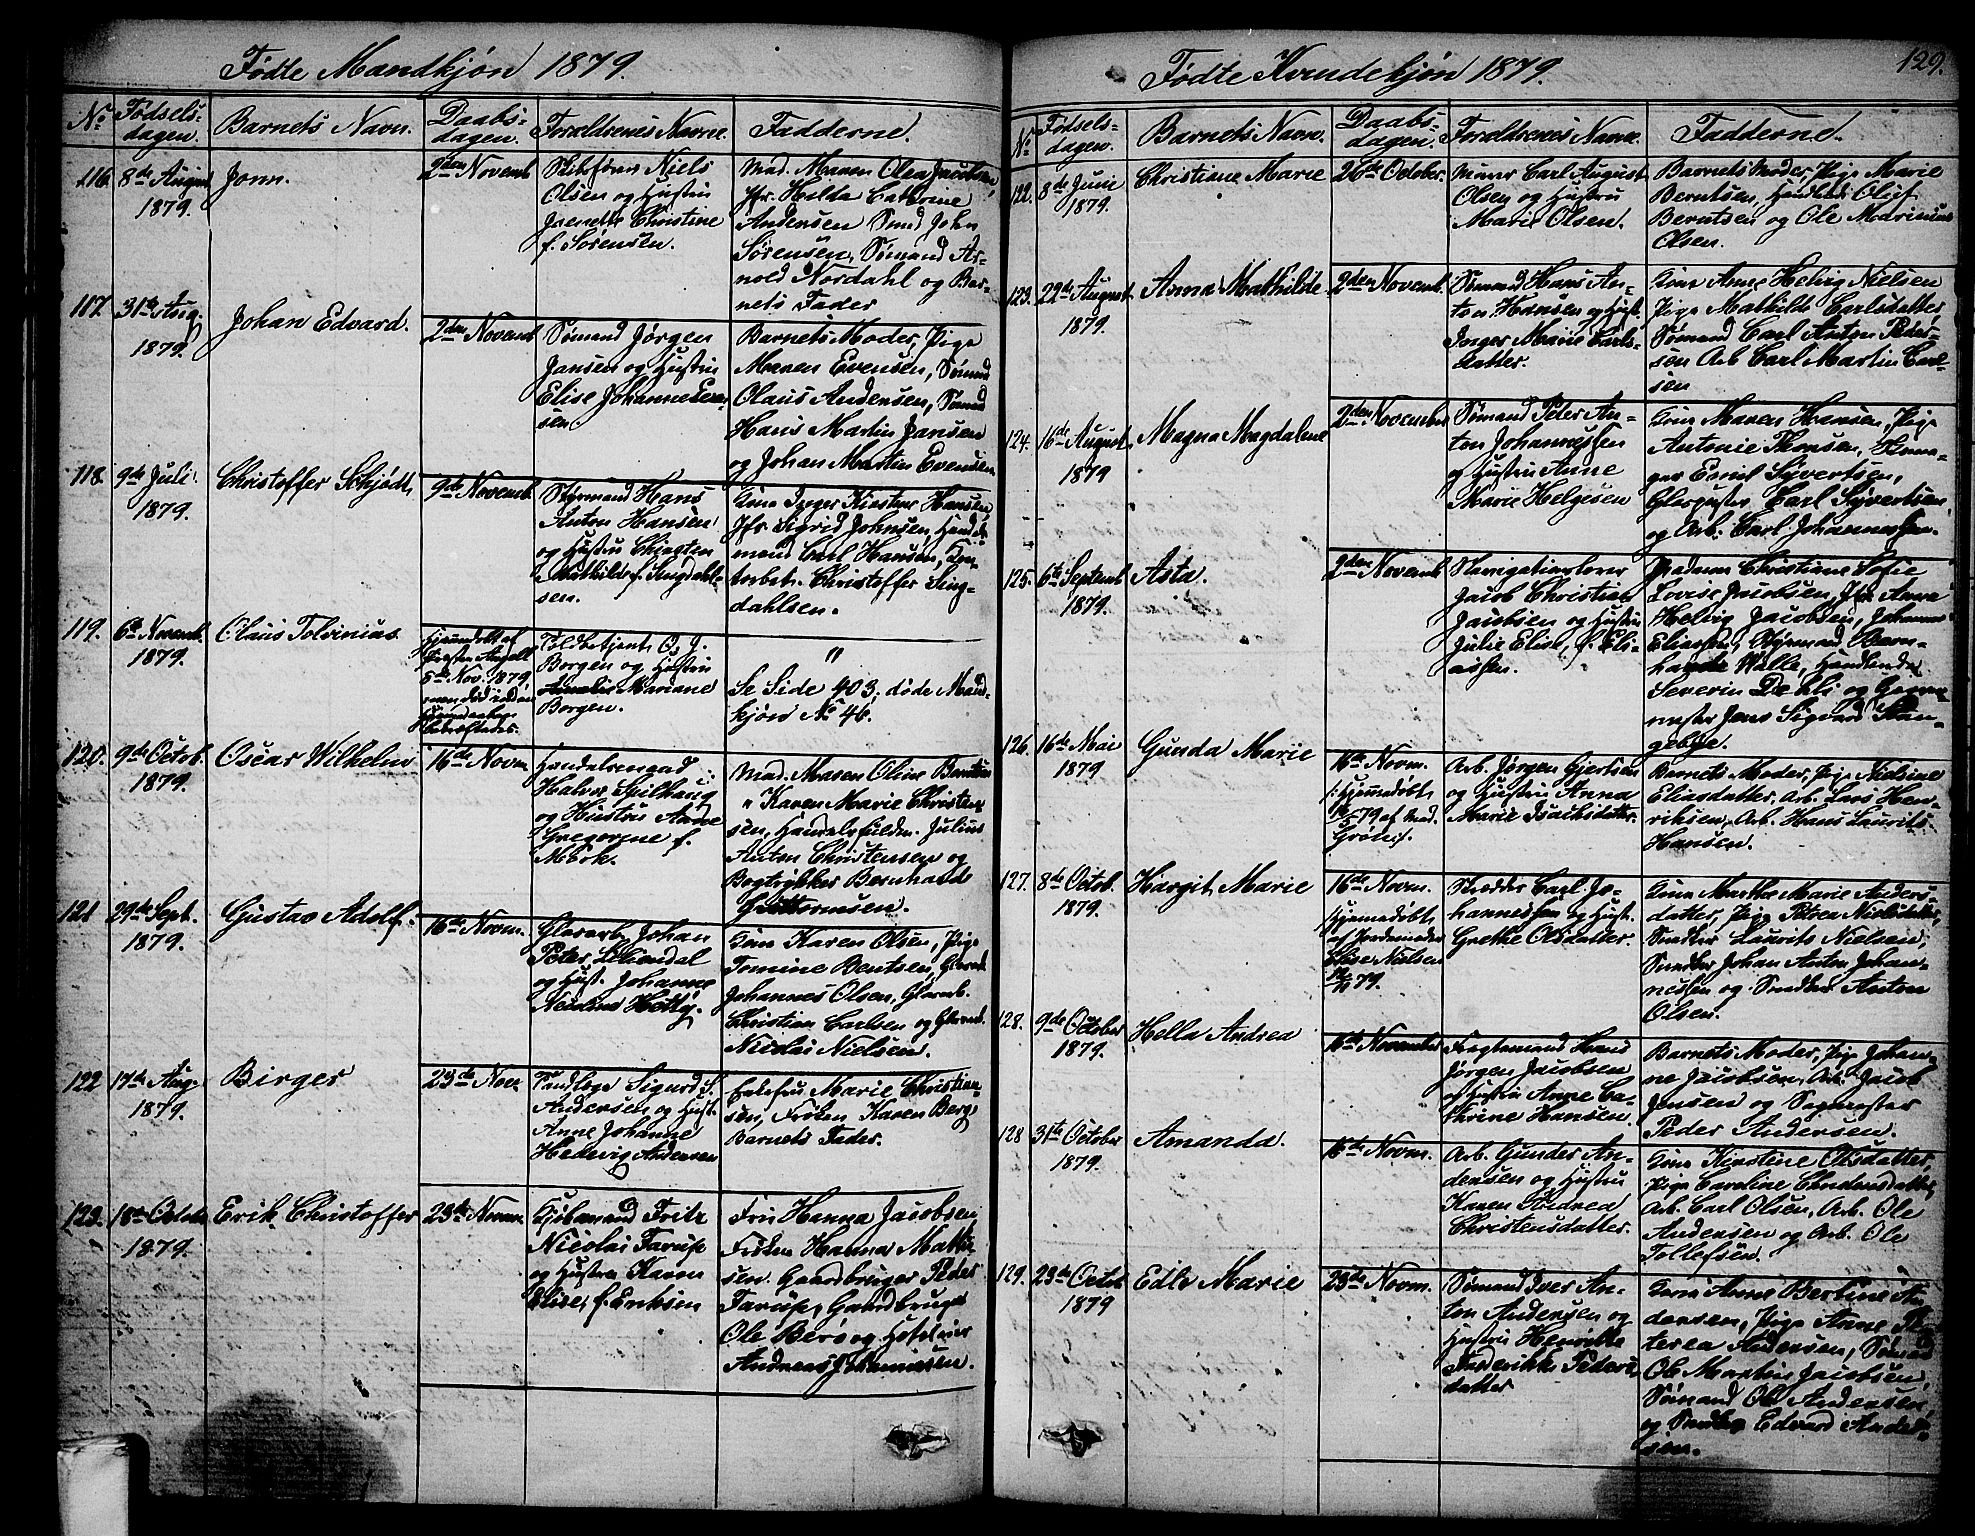 Fødte Mandkjøn 1879.
No Fødselsdagen. Barnets Navn. Daabsdagen. Forældrenes Navne. Fadderne.
116. 8de August 1879. John. 2den Novemb.
Skibsfører Niels
Olsen og Hustru
Jeanette Christine
f. Sørensen.
Mad. Maren Olea Jacobsen,
Jfr. Hilda Cathrine
Andersen Smed John
Sørensen, Sømand Ar-
nold Nordahl og Bar-
nets Fader
117. 31te Aug. 1879. Johan Edvard. 2den Novemb.
Sømand Jørgen
Jansen og Hustru
Elise Johanne Even-
sen
Barnets Moder, Pige
Maren Evensen, Sømand
Olaus Andersen, Sømand
Hans Martin Jansen
og Johan Martin Evensen
118. 9de Juli 1879. Christoffer Schjødt. 9de Novemb.
Styrmand Hans
Anton Hansen
og Hustru
Mathilde f. Singdahl-
sen.
Kone Inger Kirstine Hansen,
Jfr. Sigrid Johnsen,
mand Carl Hansen,
Christoffer Sing-
dahlsen.
119. 6te Novemb. 1879. Olaus Tolvinius.
Hjemmedøbt af
5te Nov. 1879,
Toldbetjent O. J.
Borgen og Hustru
Amalie Mariane
Borgen.
"
Se Side 403, døde Mand-
kjøn No 46.
120. 9de Octob. 1879. Oscar Wilhelm 16de Novm.
Halvor
og Hustru Anne
Gregorine f.
Mørk.
Mad. Maren Oline Berntsen
" Karen Marie Christen-
sen, Handelsfuldm. Julius
Anton Christensen og
Bogtrykker Bernhard
Guttormsen.
121 29de Sept. 1879. Gustav Adolf. 16de Novm.
Glasarb. Johan
Peter
og Hust. Johanne
Kone Karen Olsen, Pige
Tomine Bentsen, Glasarb.
Johannes Olsen, Glasarb.
Christian Carlsen og Glasarb.
Nicolai Nielsen.
122 17de Aug. 1879. Birger 23de Nov.
Tandlæge Sigurd S.
Andersen og Hust.
Anne Johanne
Hedevig Andersen
Enkefru Marie Christian-
sen, Frøken Karen Berg,
Barnets Fader.
123. 18de Octob. 1879. Erik Christoffer 23de Novm.
Kjøbmand Fritz
Nicolai Farup
og Hustru Karen
Elise, f. Eriksen
Fru Hanna Jacobsen
Frøken Hanna Mathi-
sen. Gaardbruger Peder
Farup, Gaardbruger
Ole Berg og Hotelier
Andreas Johannessen.
Fødte Kvindekjøn 1879.
129.
No Fødselsdagen. Barnets Navn. Daabsdagen. Forældrenes Navne. Fadderne.
122. 8de Juni 1879. Christiane Marie 26de October.
Murer Carl August
Olsen og Hustru
Marie Olsen.
Barnets Moder, Pige Marie
Berntsen, Handlende Oluf
Berntsen og Ole Madrinius
Olsen.
123. 22de August 1879. Anna Mathilde 2den Novemb.
Sømand Hans An-
ton Hansen og Hust.
Inger Marie Carls-
datter.
Kone Anne Helvig Nielsen
Pige Mathilde Carlsdatter
Sømand Carl Anton Peder-
sen Arb. Carl Martin Carl-
sen
124. 16de August 1879 Magna Magdalene 2den November
Sømand Peter An-
ton Johannessen
og Hustru Anne
Marie Helgesen
Kone Maren Hansen, Pige
Antonie Thonsen,
Emil Syvertsen,
Glaspuster Carl Syvertsen
og Arb. Carl Johannessen.
125. 6te Septemb. 1879. Asta. 2den Novemb.
Navigationslærer
Jacob Christian
Jacobsen og Hustru
Julie Elise, f. Eli-
assen.
Madam Christiane Sofie
Lovise Jacobsen, Jfr. Anna
Helvig Jacobsen, Johannes
Eliassen, Styrmand
Wille, Handlende
Severin Dehli og
mester Jens Sigvard Stan-
gebye.
126. 16de Mai 1879 Gunda Marie 16de Novm.
Hjemmedøbt
af Mad.
Grøn
Arb. Jørgen Gjertsen
og Hustru Anna
Marie Isachsdatter.
Barnets Moder, Pige Nielsine
Eliasdatter, Arb. Lars Hen-
riksen, Arb. Hans Laurits
Hansen.
127. 8de Octob. 1879. Hargit Marie 16de Novm.
Hjemmedøbt
af Jordemoder
Elise Nielsen
Skrædder Carl Jo-
hannessen og Hust.
Grethe Olsdatter.
Kone Marthe Marie Anders-
datter, Pige Petrea Nielsdatter,
Snedker Laurits Nielsen,
Snedker Johan Anton Johan-
nessen og Snedker Anton
Olsen.
128. 9de October 1879. Hella Andrea 16de November
Fragtemand Hans
Jørgen Jacobsen
og Hustru Anne Ca-
thrine Hansen.
Barnets Moder, Pige Johan-
ne Jacobsen, Arb. Jacob
Jensen og Sagmester
Peder Andersen.
128 31te October 1879. Amanda. 16de Novm.
Arb. Gunder An-
dersen og Hustru
Karen Andrea
Christensdatter.
Kone Kirstine Olsdatter,
Pige Caroline
Arb. Carl Olsen, Arb. Ole
Andersen og Arb. Ole
Tollefsen.
129. 23de Octob. 1879 Edle Marie 23de Novm.
Sømand Iver An-
ton Andersen og
Hustru Henriette
Frederikke Peders-
datter
Kone Anne Bertine An-
dersen, Pige Anne Pe-
trea Andersen, Sømand
Ole Martin Jacobsen,
Sømand Ole Andersen
og Snedker Edvard Ander-
sen.